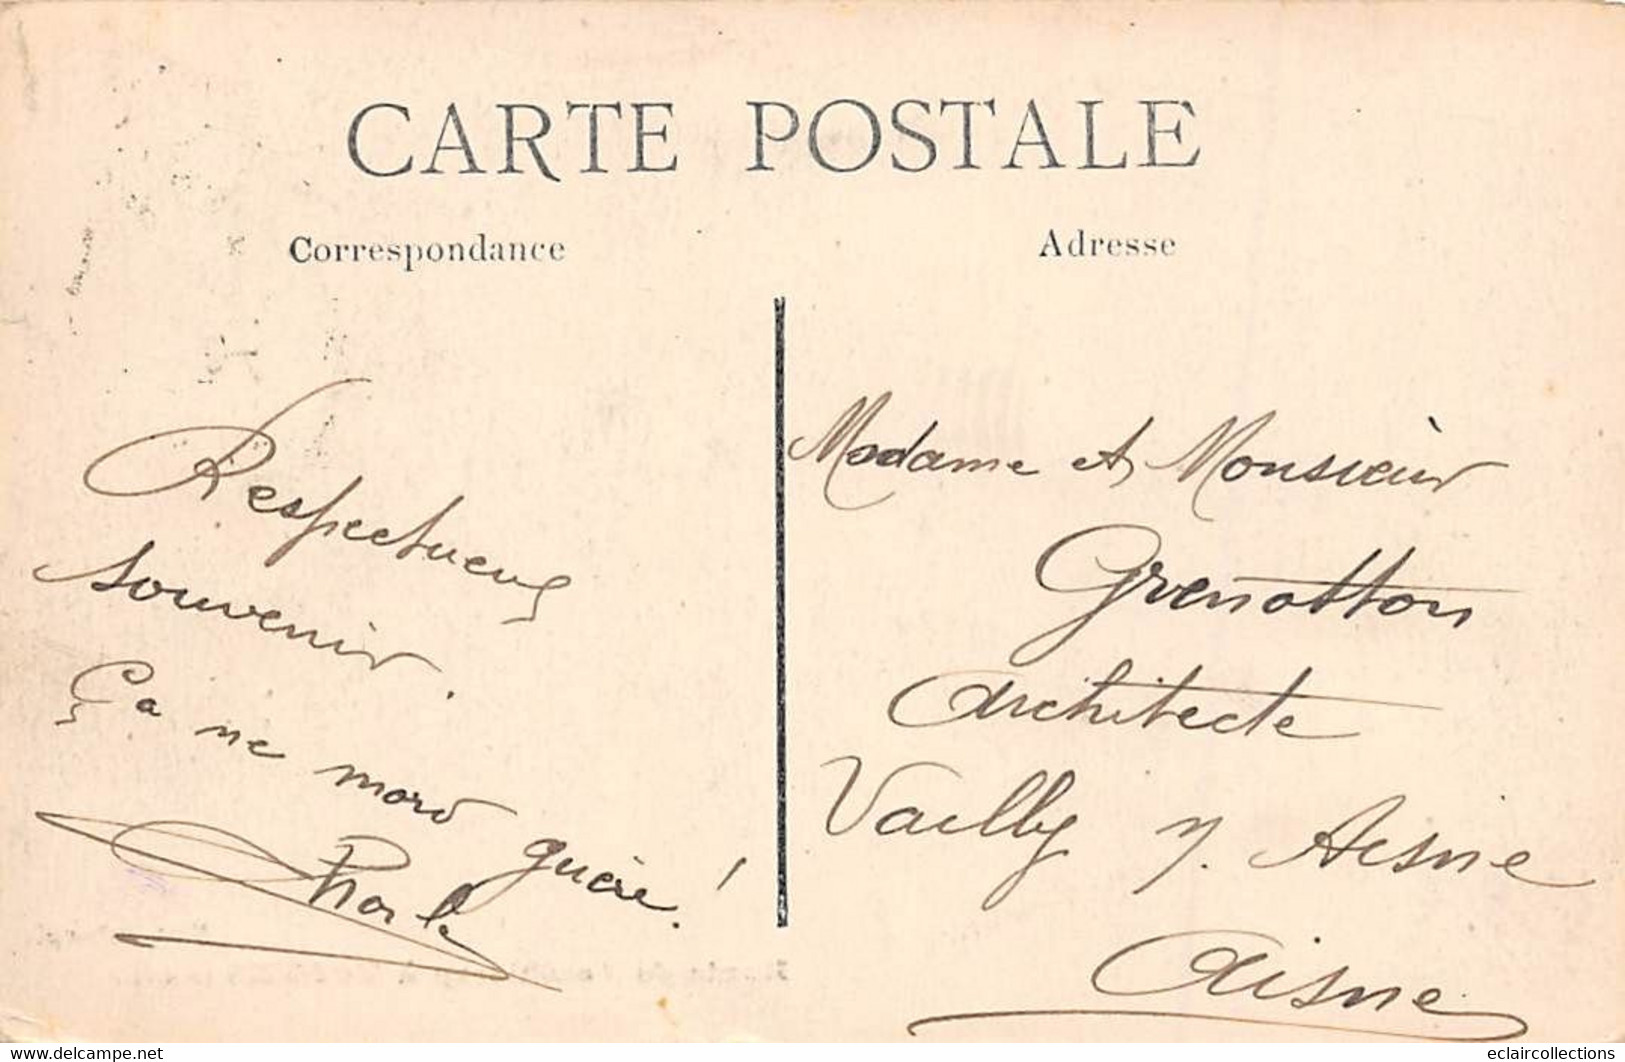 CARTE POSTALE
Correspondance
Adresse
Respectueux
souvenir.
Ça ne mord guère!
Madame et Monsieur
Grenotton
Architecte
Vailly s/. Aisne
Aisne
www.delcampe.net
eclaircollections